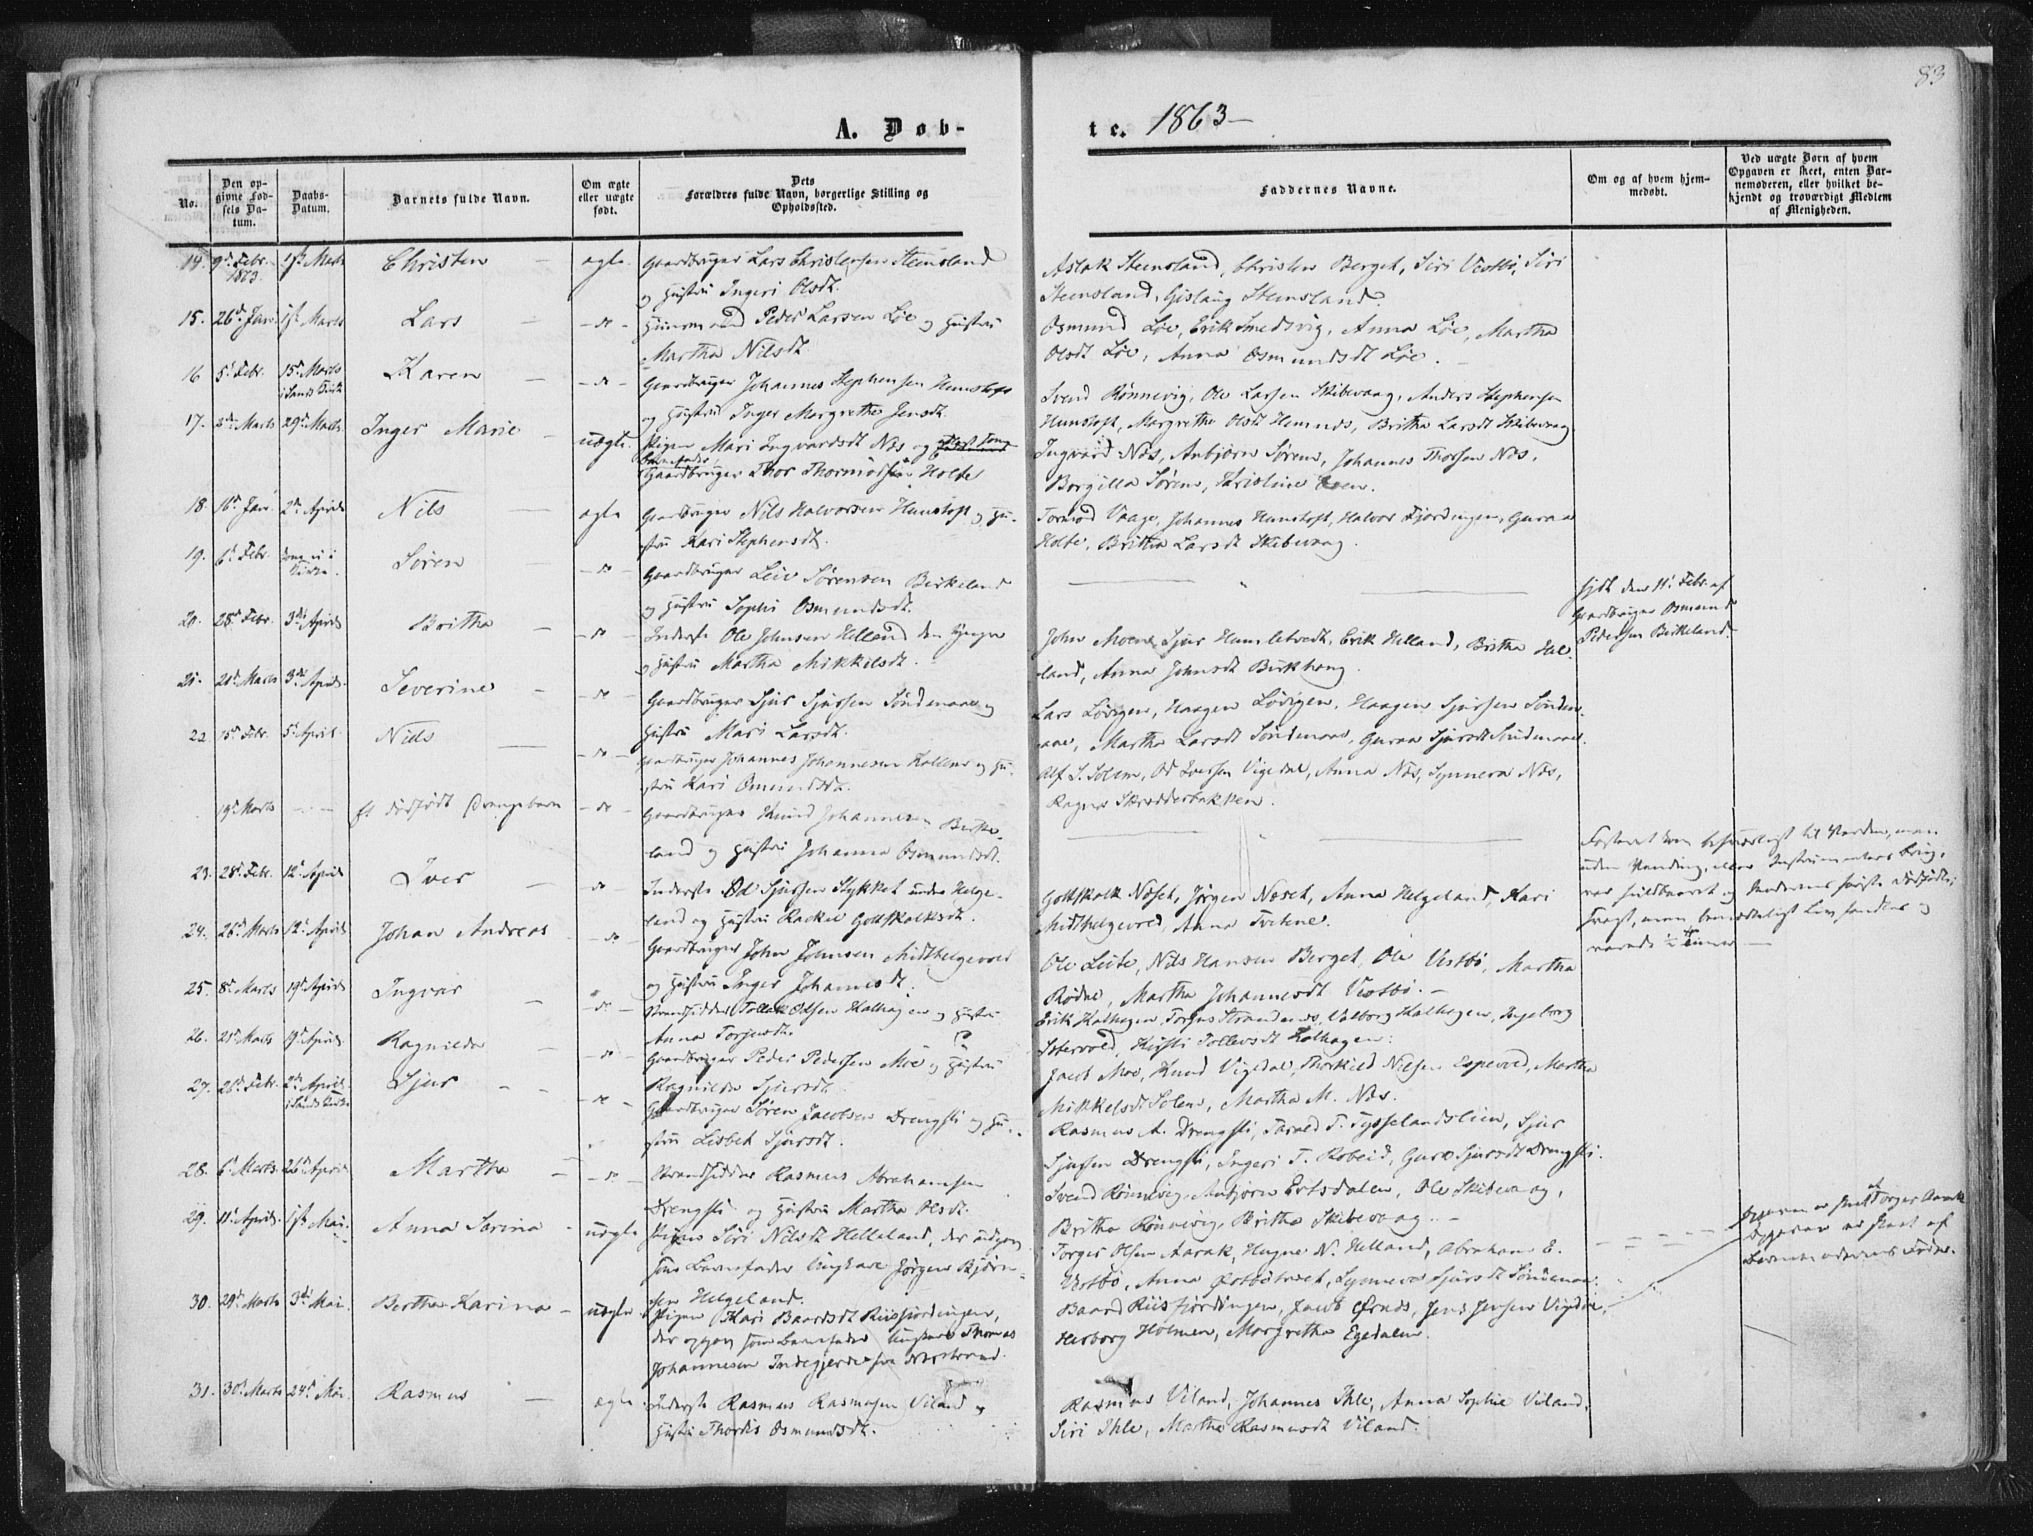 83
A. Døb-
te. 1863 –
No.
Den op-
givne Fød-
sels Da-
tum.
Daabs-
Datum.
Barnets fulde Navn.
Om ægte
eller uægte
født.
Dets
Forældres fulde Navn, borgerlige Stilling og
Opholdssted.
Faddernes Navne.
Om og af hvem hjem-
medøbt.
Ved uægte Born af hvem
Opgaven er skeet, enten Bar-
nemoderen, eller hvilket be-
kjendt og troværdigt Medlem
af Menigheden.
14. 9d Febr. 1863. 1st Marts Christen – ægte. Gaardbruger Lars Christensen Steinsland
og Hustru Ingeri Olsdt.
Aslak Steinsland, Christen Berget, Siri Vestbø, Siri
Steinsland, Gislaug Steinsland.
15. 26d Jan. 1st Marts Lars – – do – Huusmand Peder Larsen Løe og Hustru
Martha Nilsdt
Osmund Løe, Erik Smedsvig, Anna Løe, Martha
Olsdt Løe, Anna Osmundsdt Løe. –
16 5d Febr. 15d Marts i Sands Kirke Karen – – do – Gaardbruger Johannes Stephensen Hunstoft
og Hustru Inger Margrethe Jensdt.
Svend Rønnevig, Ole Larsen Skibevaag, Anders Stephensen
Hunstoft, Margrethe Olsdt Hemnes, Britha Larsdt Skibevaag
17. 2den Marts 29d Marts Inger Marie – uægte. Pigen Mari Ingvardsdt Næs og
Barnefader
Gaardbruger Thor Thormodsen Holte
Ingvard Næs, Anbjørn Sørens, Johannes Thorsen Næs,
Borgilla Sørens, Kristine
18. 16d Jan. 2den April Nils – ægte Gaardbruger Nils Halvorsen Hunstoft og Hu-
stru Kari Stephensdt.
Tormod Vaage, Johannes Hunstoft, Halvor Fjordingen, Guraa
Holte, Britha Larsdt Skibevaag.
19. 6d Febr. Søren – – do – Gaardbruger Leiv Sørensen Birkeland
og Hustru Sophi Osmundsdt.
hjdt. den 11d Febr. af
Gaardbruger Osmund
Pedersen Birkeland
20. 28d Febr. 3die April Britha – – do – Inderste Ole Johnsen Helland den Yngre
og Hustru Martha Mikkelsdt.
John Moene, Sjur Humletvedt, Erik Helland, Britha Hel-
land, Anna Johnsdt Birkhoug
21. 21d Marts 3die April Severine – – do – Gaardbruger Sjur Sjursen Søndenaae og
Hustru Mari Larsdt.
Lars Løvigen, Haagen Løvigen, Haagen Sjursen Sønden-
aae, Martha Larsdt Søndenaae, Guraa Sjursdt Søndenaae.
22 15d Febr. 5d April. Nils – – do – Gaardbruger Johannes Johannesen Kollene og Hu-
stru Kari Omundsdt.
Alf S. Solem, Od Iversen Vigedal, Anna Næs, Synneva Næs,
Ragna Skrædderbakken.
19d Marts – – Et dødfødt Drengebarn – do – Gaardbruger Knud Johannesen Birke-
land og Hustru Johanna Osmundsdt.
Fosteret kom til Verden, men
uden Vending, eller Instrumenters Brug,
var fuldbaaret og Moderens første dødfødte;
23. 28d Febr. 12d April Iver – do – Inderste Od Sjursen Stykket under Helge-
land og Hustru Rackel Gottskalksdt.
Gottskalk Næset, Jørgen Næset, Anna Helgeland, Kari
Midthelgevold, Anna Tvetene.
24. 26d Marts 12d April Johan Andreas – do – Gaardbruger John Johnsen Midthelgevold
og Hustru Inger Johannesdt.
Ole Leite, Nils Hansen Berget, Ole Vestbø, Martha
Rødne, Martha Johannesdt Vestbø. –
25. 8d Marts 19d April Ingvar – – do – Strandsidder Tollak Olsen Kalhagen og Hustru
Anna Torjusdt.
Erik Kalhagen, Torjus Strandenæs, Valborg Kalhagen, Ingeborg
Østervold, Kirsti Tollevsdt Kalhagen.
26. 21d Marts 19d April. Ragnilda – – do – Gaardbruger Peder Pedersen Moe og Hustru
Ragnilda Sjursdt.
Jacob Moe, Knud Vigedal, Thorkild Nilsen Espevold, Martha
Mikkelsdt Solem, Martha M. Næs.
27. 26d Febr. 2den April i Sands Kirke Sjur – – do – Gaardbruger Søren Jacobsen Drengsti og Hu-
stru Lisbet Sjursdt.
Rasmus A. Drengsti, Tarald T. Tysselandslien, Sjur
Sjursen Drengsti, Ingeri T. Robeid, Guro Sjursdt Drengsti.
28. 6d Marts 26d April Martha – – do – Strandsidder Rasmus Abrahamsen
Drengsti og Hustru Martha Olsdt.
Svend Rønnevig, Anbjørn Evtsdalen, Ole Skibevaag,
Britha Rønnevig, Britha Skibevaag. –
29. 11d April. 1st Mai. Anna Sarina – uægte Pigen Siri Nilsdt Helleland, der udgav
som Barnefader Ungkarl Jørgen Bjørn-
sen Helgeland.
Torger Olsen Aarak, Hagne N. Helland, Abraham E.
Vestbø, Anna Østbøtvedt, Synneva Sjursdt Søndenaae.
Opgaven er skeet af Torger Aarak
30. 29d Marts 3die Mai. Bertha Karina – uægte Pigen Kari Baardsdt Riisfjordingen,
der opgav som Barnefader Ungkarl Thomas
Johannesen Indregjerde fra Norstrand.
Baard Riisfjordingen, Jacob Ørnds, Jens Jensen Vigdal,
Herborg Holmen, Margretha Egedalen.
Opgaven er skeet af
Barnemoderens Fader.
31. 30d Marts 24d Mai. Rasmus – ægte Inderste Rasmus Rasmusen Viland og
Hustru Thordis Osmundsdt.
Rasmus Viland, Johannes Ihle, Anna Sophie Viland,
Siri Ihle, Martha Rasmusdt Viland.